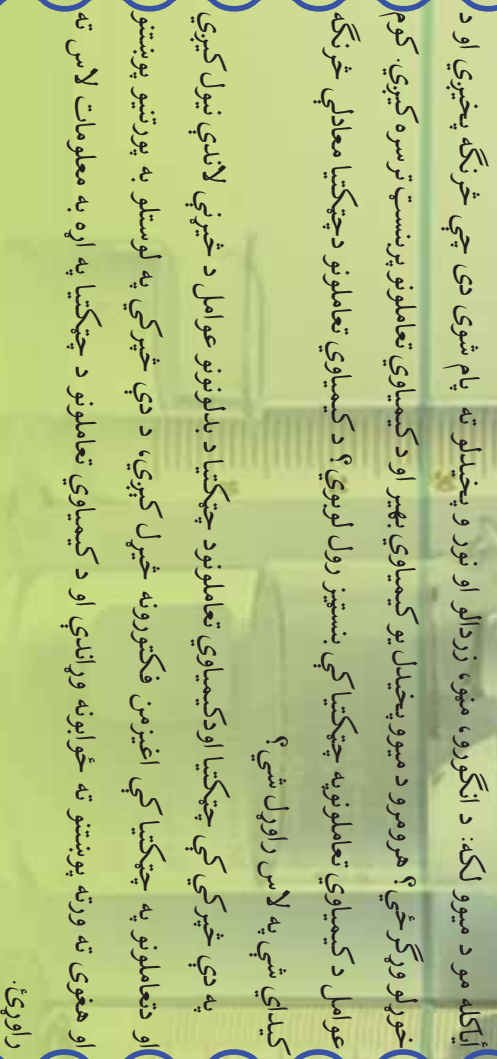 آیا کله مو د میوو لکه: د انگورو، منو، زردالو او نور و پخیدلو ته پام شوی دی چې څرنگه پخیږي او د
خوړلو وړگرځي؟ هرومرو د میوو پخیدل یو کیمیاوي بهیر او د کیمیاوي تعاملونو پر بنسټ تر سره کیږي. کوم
عوامل د کیمیاوي تعاملونو په چټکتیا کې بنسټیز رول لوبوي؟ د کیمیاوي تعاملونو د چټکتیا معادلې څرنگه
کیدای شي په لاس راوړل شي؟
په دې څپرکي کې چټکتیا او د کیمیاوي تعاملونو د چټکتیا د بدلونونو عوامل د څیړنې لاندې نیول کیږي
او د تعاملونو په چټکتیا کې اغیزمن فکتورونه څیړل کیږي، د دې څپرکي په لوستلو به پورتنیو پوښتنو
او هغوی ته ورته پوښتنو ته ځوابونه وړاندې او د کیمیاوي تعاملونو د چټکتیا په اړه به معلومات لاس ته
راوړئ.